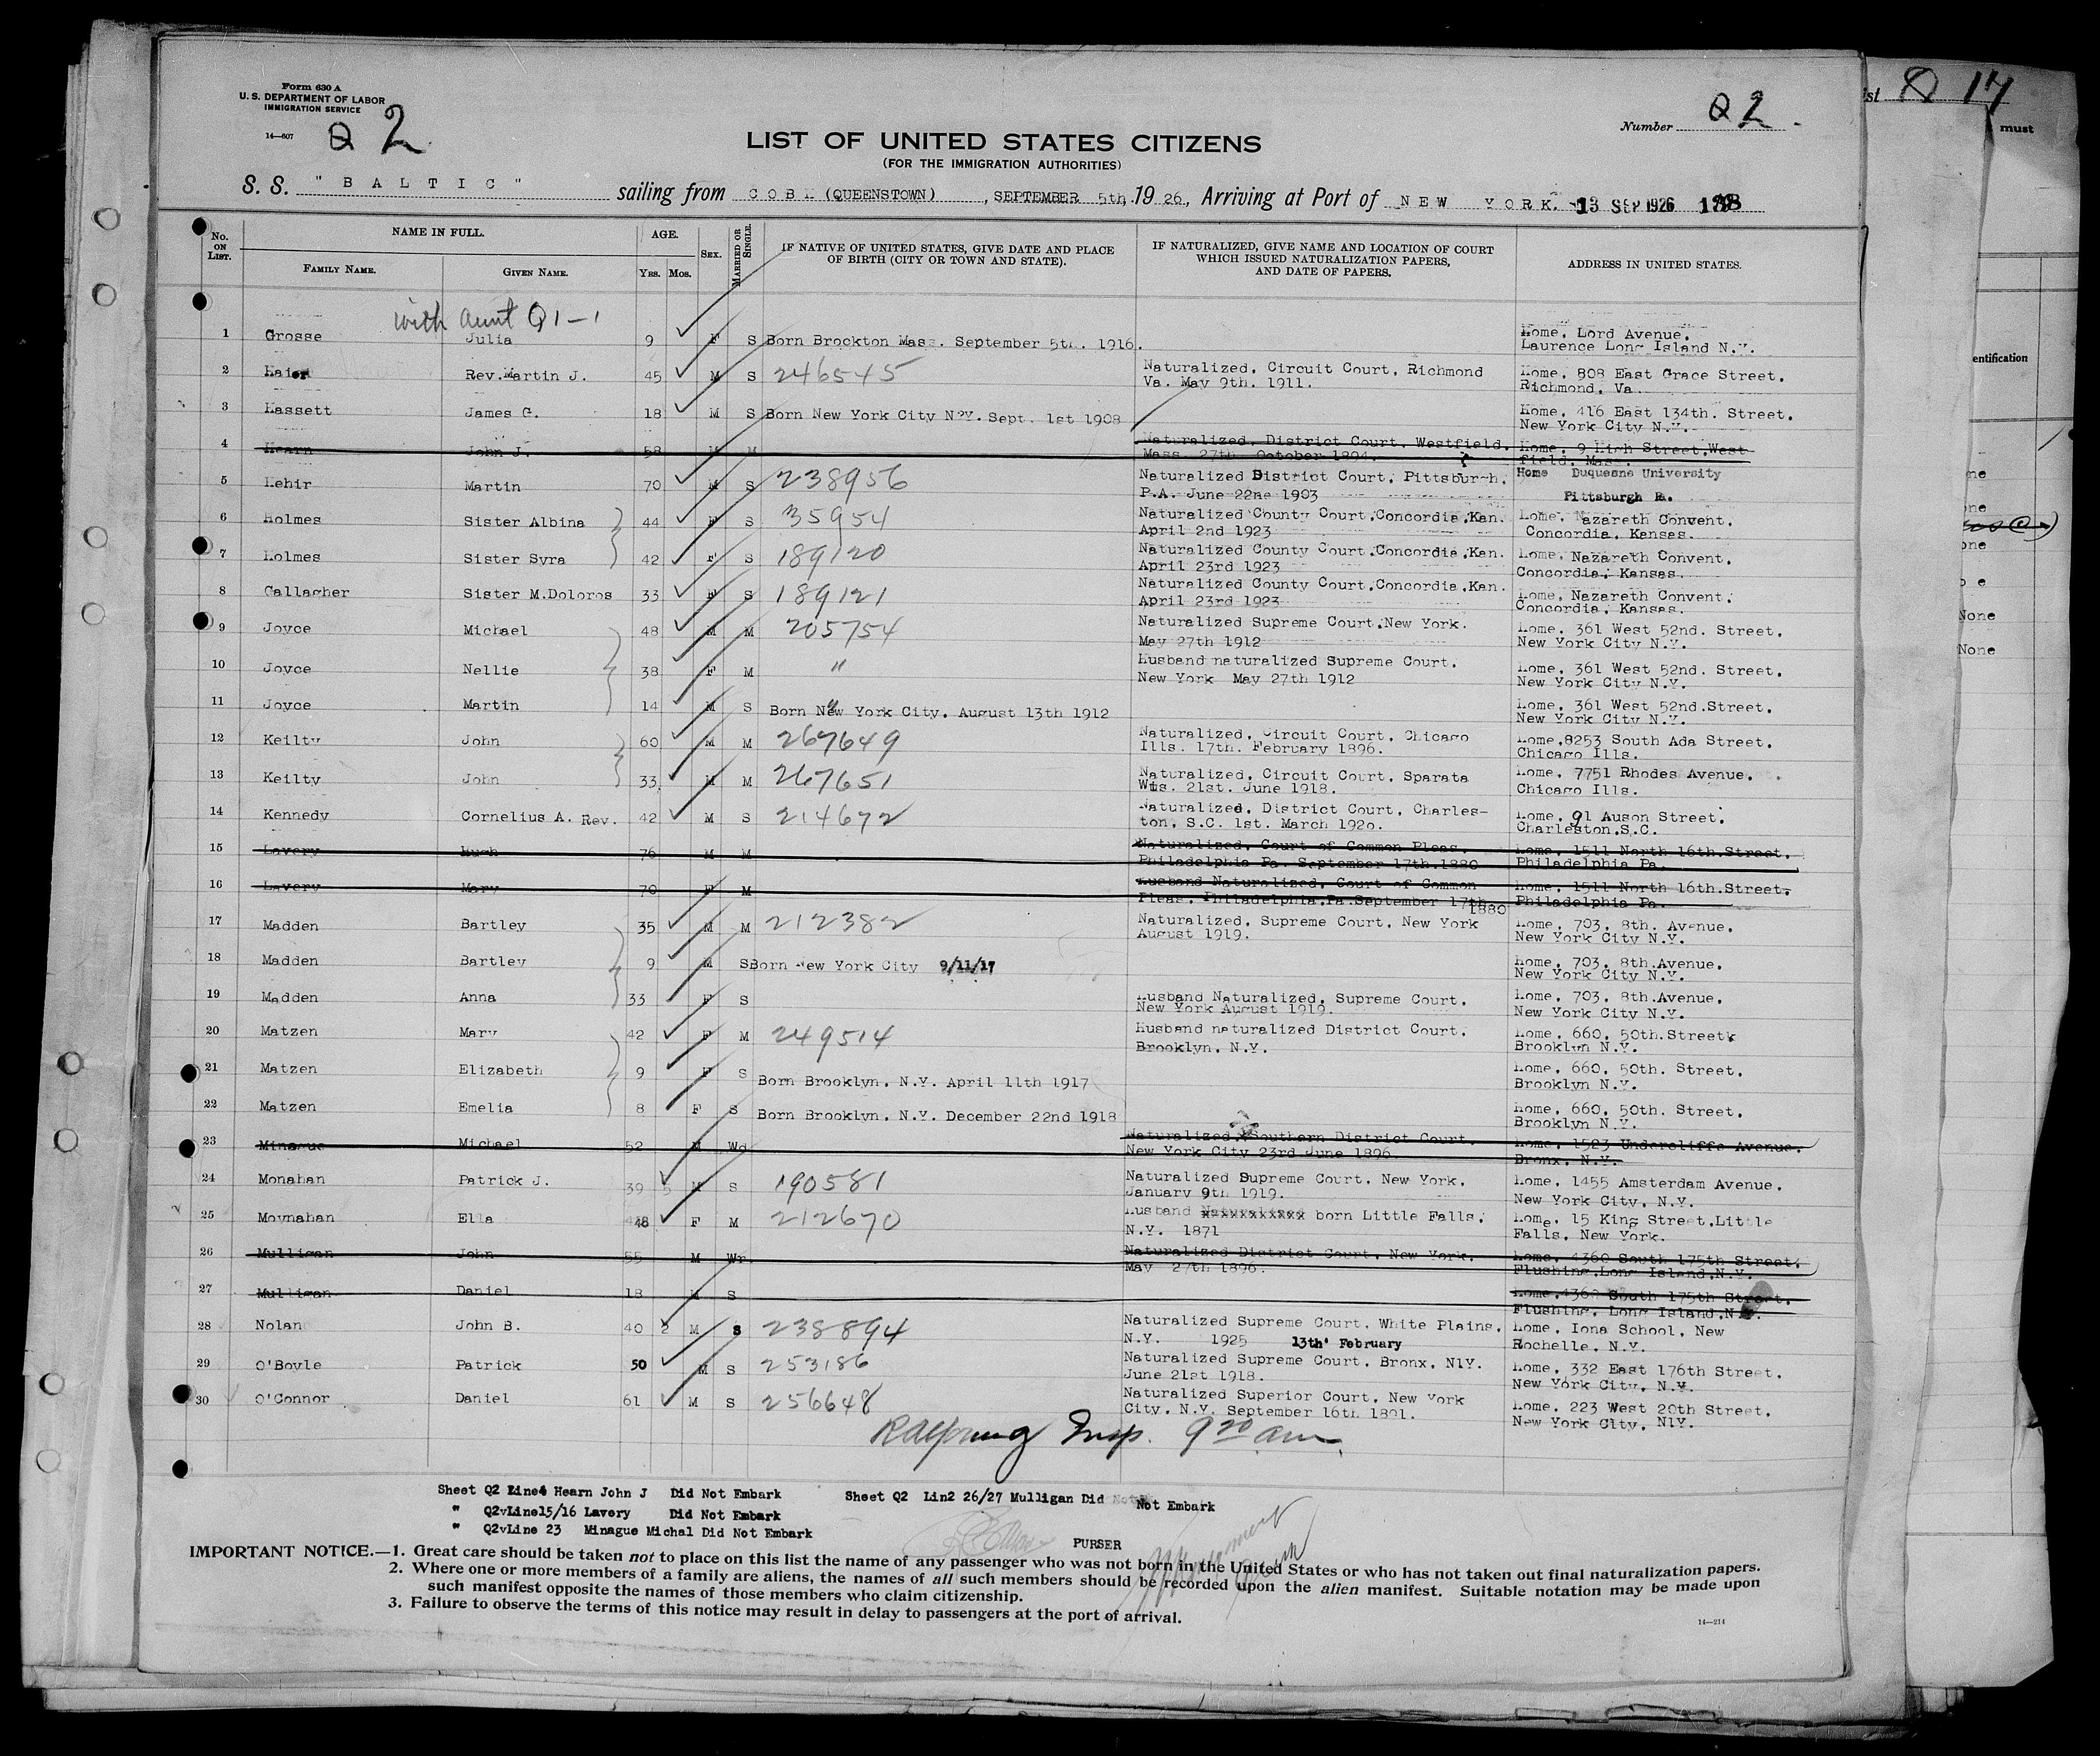 Form 630 A
U. S. DEPARTMENT OF LABOR
IMMIGRATION SERVICE
14—607
Q 2
Number Q 2.
LIST OF UNITED STATES CITIZENS
(FOR THE IMMIGRATION AUTHORITIES)
S. S. "BALTIC" sailing from COBH (QUEENSTOWN), SEPTEMBER 5th, 1926, Arriving at Port of NEW YORK. 13 SEP 1926
No. ON LIST.
NAME IN FULL.
FAMILY NAME.
GIVEN NAME.
AGE.
YRS.
MOS.
SEX.
MARRIED OR SINGLE.
IF NATIVE OF UNITED STATES, GIVE DATE AND PLACE
OF BIRTH (CITY OR TOWN AND STATE).
IF NATURALIZED, GIVE NAME AND LOCATION OF COURT
WHICH ISSUED NATURALIZATION PAPERS,
AND DATE OF PAPERS.
ADDRESS IN UNITED STATES.
with aunt Q1-1
1 Grosse Julia 9 F S Born Brockton Mass. September 5th. 1916. Home, Lord Avenue,
Laurence Long Island N.Y.
2 Rev. Martin J. 45 M S 246545 Naturalized, Circuit Court, Richmond Home, 808 East Grace Street.
Va. May 9th. 1911. Richmond, Va.
3 Hassett James G. 18 M S Born New York City N.Y. Sept. 1st 1908 Home, 416 East 134th. Street.
New York City N.Y.
4 Hearn John J. 58 M M Naturalized, District Court, Westfield, Home, 9 High Street, West
Mass. 27th. October 1894. field, Mass.
5 Hehir Martin 70 M S 238956 Naturalized District Court, Pittsburgh. Home Duquesne University
P.A. June 22ne 1903 Pittsburgh Pa.
6 Holmes Sister Albina 44 F S 35954 Naturalized County Court, Concordia, Kan. Home, Nazareth Convent,
April 2nd 1923 Concordia, Kansas.
7 Holmes Sister Syra 42 F S 189120 Naturalized County Court, Concordia, Kan. Home, Nazareth Convent,
April 23rd 1923 Concordia, Kansas.
8 Gallagher Sister M. Doloros 33 F S 189121 Naturalized County Court, Concordia, Kan. Home, Nazareth Convent,
April 23rd 1923 Concordia, Kansas.
9 Joyce Michael 48 M M 205754 Naturalized Supreme Court, New York. Home, 361 West 52nd. Street,
May 27th 1912 New York City N.Y.
10 Joyce Nellie 38 F M " Husband naturalized Supreme Court, Home, 361 West 52nd. Street,
New York May 27th 1912 New York City N.Y.
11 Joyce Martin 14 M S Born New York City, August 13th 1912 Home, 361 West 52nd. Street,
New York City N.Y.
12 Keilty John 60 M M 267649 Naturalized, Circuit Court, Chicago Home, 8253 South Ada Street,
Ills. 17th. February 1896. Chicago Ills.
13 Keilty John 33 M M 267651 Naturalized, Circuit Court, Sparata Home, 7751 Rhodes Avenue.
Wis. 21st. June 1918. Chicago Ills.
14 Kennedy Cornelius A. Rev. 42 M S 214672 Naturalized, District Court, Charles- Home, 91 Auson Street.
ton, S.C. 1st. March 1920. Charleston, S.C.
15 Lavery Hugh 76 M M Naturalized, Court of Common Pleas, Home, 1511 North 16th. Street,
Philadelphia Pa. September 17th. 1880 Philadelphia Pa.
16 Lavery Mary 70 F M Husband Naturalized, Court of Common Home, 1511 North 16th. Street,
Pleas, Philadelphia, Pa. September 17th. 1880 Philadelphia Pa.
17 Madden Bartley 35 M M 212382 Naturalized, Supreme Court, New York Home, 703, 8th. Avenue,
August 1919. New York City N.Y.
18 Madden Bartley 9 M S Born New York City 9/11/17 Home, 703, 8th. Avenue,
New York City N.Y.
19 Madden Anna 33 F S Husband Naturalized, Supreme Court, Home, 703, 8th. Avenue,
New York August 1919. New York City N.Y.
20 Matzen Mary 42 F M 249514 Husband naturalized District Court, Home, 660, 50th. Street,
Brooklyn, N.Y. Brooklyn N.Y.
21 Matzen Elizabeth 9 F S Born Brooklyn, N.Y. April 11th 1917 Home, 660, 50th. Street.
Brooklyn N.Y.
22 Matzen Emelia 8 F S Born Brooklyn, N.Y. December 22nd 1918 Home, 660, 50th. Street.
Brooklyn N.Y.
23 Minague Michael 52 M Wd. Naturalized Southern District Court, Home, 1523 Undercliffe Avenue.
New York City 23rd June 1896. Bronx, N.Y.
24 Monahan Patrick J. 39 5 M S 190581 Naturalized Supreme Court, New York. Home, 1455 Amsterdam Avenue.
January 9th 1919. New York City, N.Y.
25 Moynahan Ella 48 F M 212670 Husband xxxxxxxxxxx born Little Falls, Home, 15 King Street, Little
N.Y. 1871 Falls, New York.
26 Mulligan John 55 M Wr. Naturalized District Court, New York. Home, 4360 South 175th Street,
May 27th 1896. Flushing, Long Island, N.Y.
27 Mulligan Daniel 18 M S Home, 4360 South 175th Street,
Flushing, Long Island, N.Y.
28 Nolan John B. 40 2 M S 238894 Naturalized Supreme Court, White Plains, Home, Iona School, New
N.Y. 1925 13th February Rochelle, N.Y.
29 O'Boyle Patrick 50 M S 253186 Naturalized Supreme Court, Bronx, N1Y. Home, 332 East 176th Street.
June 21st 1918. New York City, N.Y.
30 O'Connor Daniel 61 M S 256648 Naturalized Superior Court, New York Home, 223 West 20th Street.
City, N.Y. September 16th 1891. New York City, N1Y.
Insp. 9 20 am
Sheet Q2 Line4 Hearn John J Did Not Embark Sheet Q2 Lin2 26/27 Mulligan Did Not Embark
" Q2vLine15/16 Lavery Did Not Embark
" Q2vLine 23 Minague Michal Did Not Embark
PURSER
IMPORTANT NOTICE.—1. Great care should be taken not to place on this list the name of any passenger who was not born in the United States or who has not taken out final naturalization papers.
2. Where one or more members of a family are aliens, the names of all such members should be recorded upon the alien manifest. Suitable notation may be made upon
such manifest opposite the names of those members who claim citizenship.
3. Failure to observe the terms of this notice may result in delay to passengers at the port of arrival.
14—214
ist 17
must
entification
ne
one
one
o e
None
None